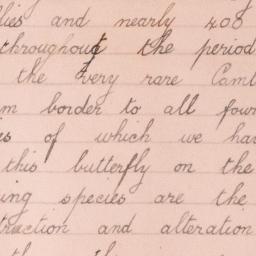 lies and nearly 408
throughout the period
the very rare Camb
m border to all four
es of which we hav
this butterfly on the
ing species are the
truction and alteration